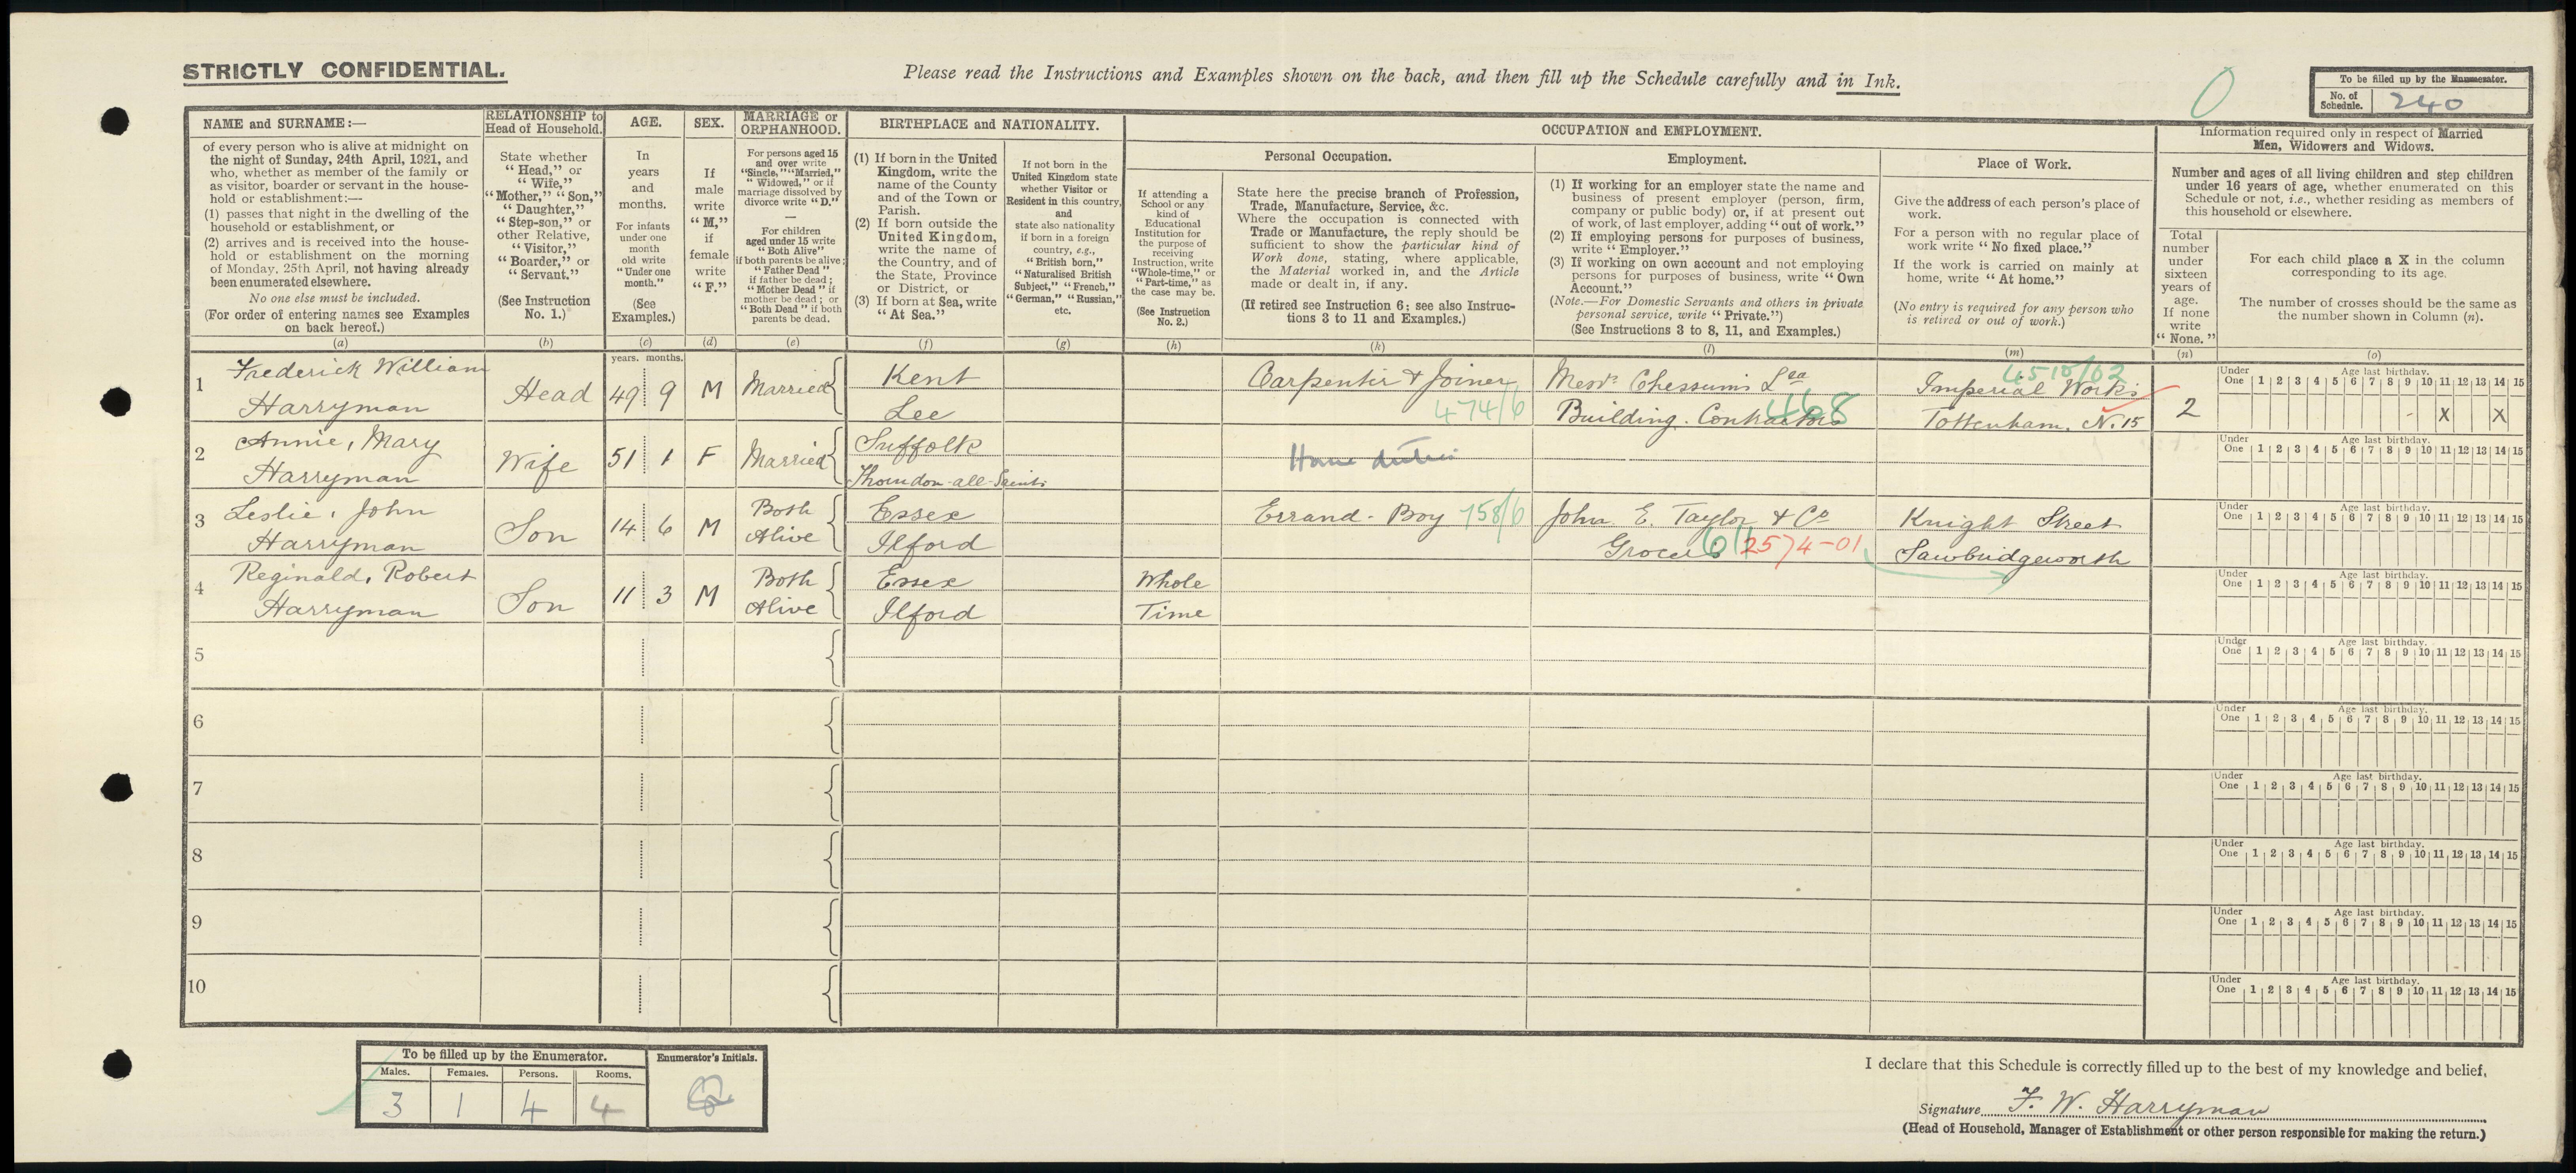 STRICTLY CONFIDENTIAL.
Please read the Instructions and Examples shown on the back, and then fill up the Schedule carefully and in Ink.
To be filled up by the Enumerator.
No. of Schedule. 240
0
NAME and SURNAME:—
of every person who is alive at midnight on
the night of Sunday, 24th April, 1921, and
who, whether as member of the family or
as visitor, boarder or servant in the house-
hold or establishment:—
(1) passes that night in the dwelling of the
household or establishment, or
(2) arrives and is received into the house-
hold or establishment on the morning
of Monday, 25th April, not having already
been enumerated elsewhere.
No one else must be included.
(For order of entering names see Examples
on back hereof.)
(a)
RELATIONSHIP to
Head of Household.
State whether
"Head," or
"Wife,"
"Mother," "Son,"
"Daughter,"
"Step-son," or
other Relative,
"Visitor,"
"Boarder," or
"Servant."
(See Instruction
No. 1.)
(b)
AGE.
In
years
and
months.
For infants
under one
month
old write
"Under one
month."
(See
Examples.)
(c)
SEX.
If
male
write
"M,"
if
female
write
"F."
(d)
MARRIAGE or
ORPHANHOOD.
For persons aged 15
and over write
"Single," "Married,"
"Widowed," or if
marriage dissolved by
divorce write "D."
—
For children
aged under 15 write
"Both Alive"
if both parents be alive;
"Father Dead"
if father be dead;
"Mother Dead" if
mother be dead; or
"Both Dead" if both
parents be dead.
(e)
BIRTHPLACE and NATIONALITY.
(1) If born in the United
Kingdom, write the
name of the County
and of the Town or
Parish.
(2) If born outside the
United Kingdom,
write the name of
the Country, and of
the State, Province
or District, or
(3) If born at Sea, write
"At Sea."
(f)
If not born in the
United Kingdom state
whether Visitor or
Resident in this country,
and
state also nationality
if born in a foreign
country, e.g.,
"British born,"
"Naturalised British
Subject," "French,"
"German," "Russian,"
etc.
(g)
OCCUPATION and EMPLOYMENT.
If attending a
School or any
kind of
Educational
Institution for
the purpose of
receiving
Instruction, write
"Whole-time," or
"Part-time," as
the case may be.
(See Instruction
No. 2.)
(h)
Personal Occupation.
State here the precise branch of Profession,
Trade, Manufacture, Service, &c.
Where the occupation is connected with
Trade or Manufacture, the reply should be
sufficient to show the particular kind of
Work done, stating, where applicable,
the Material worked in, and the Article
made or dealt in, if any.
(If retired see Instruction 6; see also Instruc-
tions 3 to 11 and Examples.)
(k)
Employment.
(1) If working for an employer state the name and
business of present employer (person, firm,
company or public body) or, if at present out
of work, of last employer, adding "out of work."
(2) If employing persons for purposes of business,
write "Employer."
(3) If working on own account and not employing
persons for purposes of business, write "Own
Account."
(Note.—For Domestic Servants and others in private
personal service, write "Private.")
(See Instructions 3 to 8, 11, and Examples.)
(l)
Place of Work.
Give the address of each person's place of
work.
For a person with no regular place of
work write "No fixed place."
If the work is carried on mainly at
home, write "At home."
(No entry is required for any person who
is retired or out of work.)
(m)
Information required only in respect of Married
Men, Widowers and Widows.
Number and ages of all living children and step children
under 16 years of age, whether enumerated on this
Schedule or not, i.e., whether residing as members of
this household or elsewhere.
Total
number
under
sixteen
years of
age.
If none
write
"None."
(n)
For each child place a X in the column
corresponding to its age.
The number of crosses should be the same as
the number shown in Column (n).
(o)
years. months.
Under One Age last birthday. 1 2 3 4 5 6 7 8 9 10 11 12 13 14 15
1 Frederick William Harryman Head 49 9 M Married Kent Lee Carpenter & Joiner 474/6
Building. Contractors 468
Imperial Works 4515/02
Tottenham. N.15 2 X X
Under One Age last birthday. 1 2 3 4 5 6 7 8 9 10 11 12 13 14 15
2 Annie, Mary Harryman Wife 51 1 F Married Suffolk Thorndon-all-Saints Home duties
Under One Age last birthday. 1 2 3 4 5 6 7 8 9 10 11 12 13 14 15
3 Leslie, John Harryman Son 14 6 M Both Alive Essex Ilford Errand-Boy 758/6 John E. Taylor & Co Grocers 611 2574-01 Knight Street Sawbridgeworth
Under One Age last birthday. 1 2 3 4 5 6 7 8 9 10 11 12 13 14 15
4 Reginald, Robert Harryman Son 11 3 M Both Alive Essex Ilford Whole Time
Under One Age last birthday. 1 2 3 4 5 6 7 8 9 10 11 12 13 14 15
5
Under One Age last birthday. 1 2 3 4 5 6 7 8 9 10 11 12 13 14 15
6
Under One Age last birthday. 1 2 3 4 5 6 7 8 9 10 11 12 13 14 15
7
Under One Age last birthday. 1 2 3 4 5 6 7 8 9 10 11 12 13 14 15
8
Under One Age last birthday. 1 2 3 4 5 6 7 8 9 10 11 12 13 14 15
9
Under One Age last birthday. 1 2 3 4 5 6 7 8 9 10 11 12 13 14 15
10
Under One Age last birthday. 1 2 3 4 5 6 7 8 9 10 11 12 13 14 15
To be filled up by the Enumerator.
Males. Females. Persons. Rooms.
3 1 4 4
Enumerator's Initials.
I declare that this Schedule is correctly filled up to the best of my knowledge and belief,
Signature F. W. Harryman
(Head of Household, Manager of Establishment or other person responsible for making the return.)